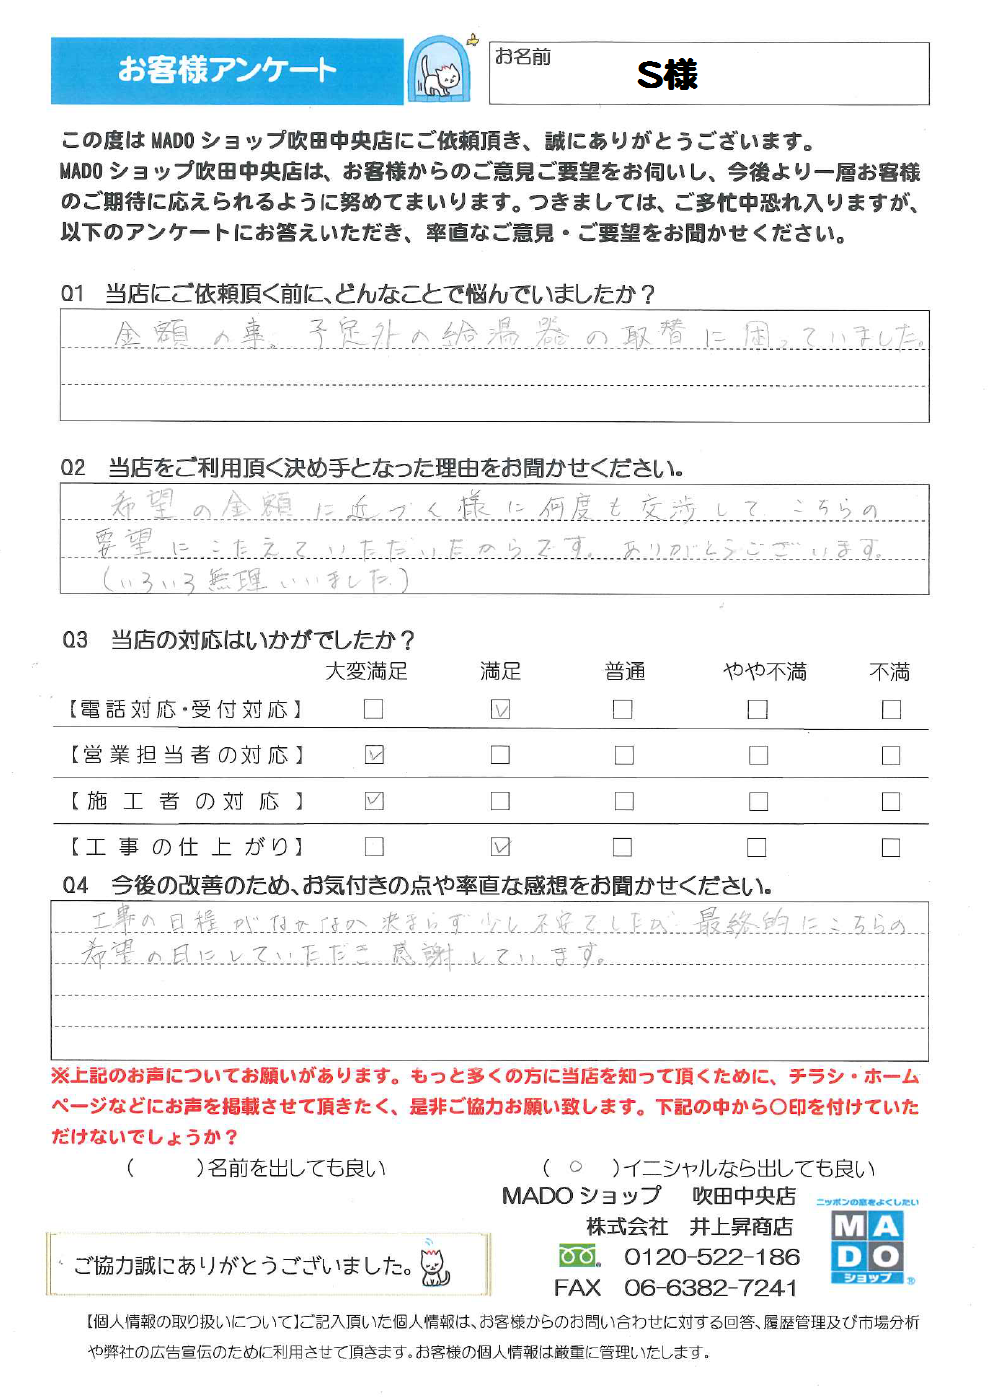 お客様アンケート
お名前
S様
この度は MADO ショップ吹田中央店にご依頼頂き、誠にありがとうございます。
MADO ショップ吹田中央店は、お客様からのご意見ご要望をお伺いし、今後より一層お客様
のご期待に応えられるように努めてまいります。つきましては、ご多忙中恐れ入りますが、
以下のアンケートにお答えいただき、率直なご意見・ご要望をお聞かせください。
Q1 当店にご依頼頂く前に、どんなことで悩んでいましたか？
金額の事。予定外の給湯器の取替に困っていました。
Q2 当店をご利用頂く決め手となった理由をお聞かせください。
希望の金額に近づく様に何度も交渉して こちらの
要望にこたえていただいたからです。ありがとうございます。
(いろいろ無理いいました)
Q3 当店の対応はいかがでしたか？
大変満足 満足 普通 やや不満 不満
【電話対応・受付対応】 □ ☑ □ □ □
【営業担当者の対応】 ☑ □ □ □ □
【施工者の対応】 ☑ □ □ □ □
【工事の仕上がり】 □ ☑ □ □ □
Q4 今後の改善のため、お気付きの点や率直な感想をお聞かせください。
工事の日程がなかなか決まらず少し不安でしたが 最終的にこちらの
希望の日にしていただき感謝しています。
※上記のお声についてお願いがあります。もっと多くの方に当店を知って頂くために、チラシ・ホーム
ページなどにお声を掲載させて頂きたく、是非ご協力お願い致します。下記の中から〇印を付けていた
だけないでしょうか？
( )名前を出しても良い ( ○ )イニシャルなら出しても良い
MADO ショップ 吹田中央店
株式会社 井上昇商店
0120-522-186
FAX 06-6382-7241
ニッポンの窓をよくしたい
MADO
ショップ ®
ご協力誠にありがとうございました。
【個人情報の取り扱いについて】ご記入頂いた個人情報は、お客様からのお問い合わせに対する回答、履歴管理及び市場分析
や弊社の広告宣伝のために利用させて頂きます。お客様の個人情報は厳重に管理いたします。